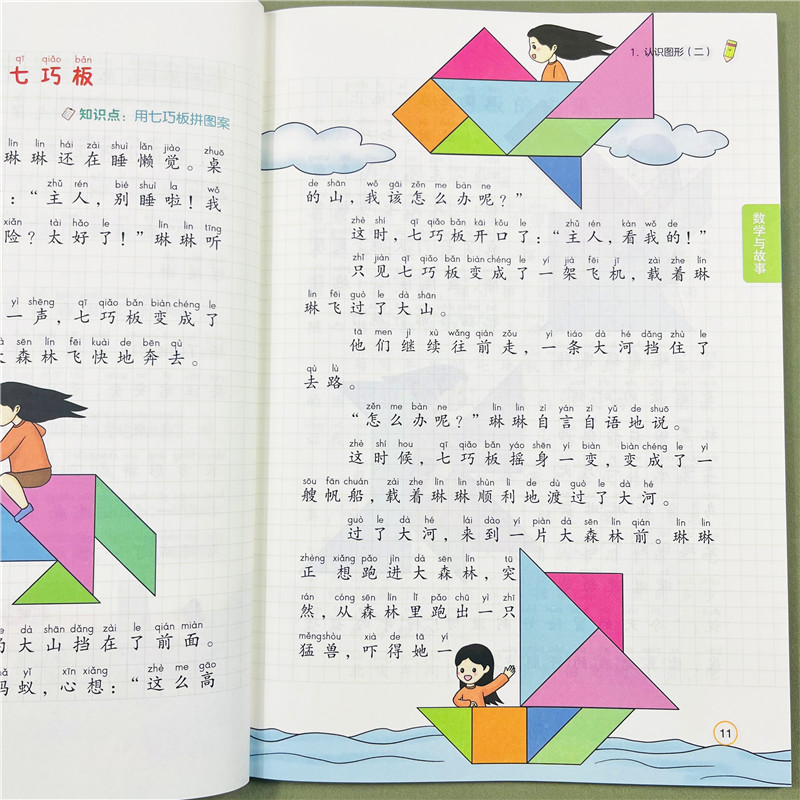 qī qiǎo bǎn
七巧板
知识点：用七巧板拼图案
lín lín hái zài shuì lǎn jiào zhuō
琳琳还在睡懒觉。桌
zhǔ rén bié shuì la wǒ
：“主人，别睡啦！我
xiǎn tài hǎo le lín lín tīng
险？太好了！”琳琳听
yì shēng qī qiǎo bǎn biàn chéng le
一声，七巧板变成了
sēn lín fēi kuài de bēn qù
大森林飞快地奔去。
de dà shān dǎng zài le qián miàn
的大山挡在了前面。
mǎ yǐ xīn xiǎng zhè me gāo
蚂蚁，心想：“这么高
1. 认识图形（二）
de shān wǒ gāi zěn me bàn ne
的山，我该怎么办呢？”
zhè shí qī qiǎo bǎn kāi kǒu le zhǔ rén kàn wǒ de
这时，七巧板开口了：“主人，看我的！”
zhǐ jiàn qī qiǎo bǎn biàn chéng le yí jià fēi jī zài zhe lín
只见七巧板变成了一架飞机，载着琳
lín fēi guò le dà shān
琳飞过了大山。
tā men jì xù wǎng qián zǒu yì tiáo dà hé dǎng zhù le
他们继续往前走，一条大河挡住了
qù lù
去路。
zěn me bàn ne lín lín zì yán zì yǔ de shuō
“怎么办呢？”琳琳自言自语地说。
zhè shí hou qī qiǎo bǎn yáo shēn yí biàn biàn chéng le yì
这时候，七巧板摇身一变，变成了一
sōu fān chuán zài zhe lín lín shùn lì de dù guò le dà hé
艘帆船，载着琳琳顺利地渡过了大河。
guò le dà hé lái dào yí piàn dà sēn lín qián lín lín
过了大河，来到一片大森林前。琳琳
zhèng xiǎng pǎo jìn dà sēn lín tū
正想跑进大森林，突
rán cóng sēn lín lǐ pǎo chū yì zhī
然，从森林里跑出一只
měng shòu xià de tā yí
猛兽，吓得她一
数学与故事
11